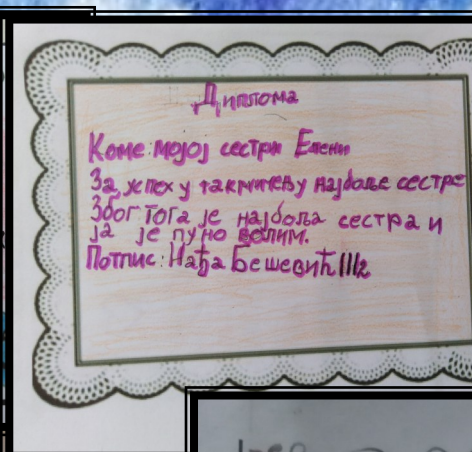 Диплома
Коме: мојој сестри Елени
За успех у такмичењу најбоље сестре
Због тога је најбоља сестра и
ја је пуно волим.
Потпис: Нађа Бешевић III2